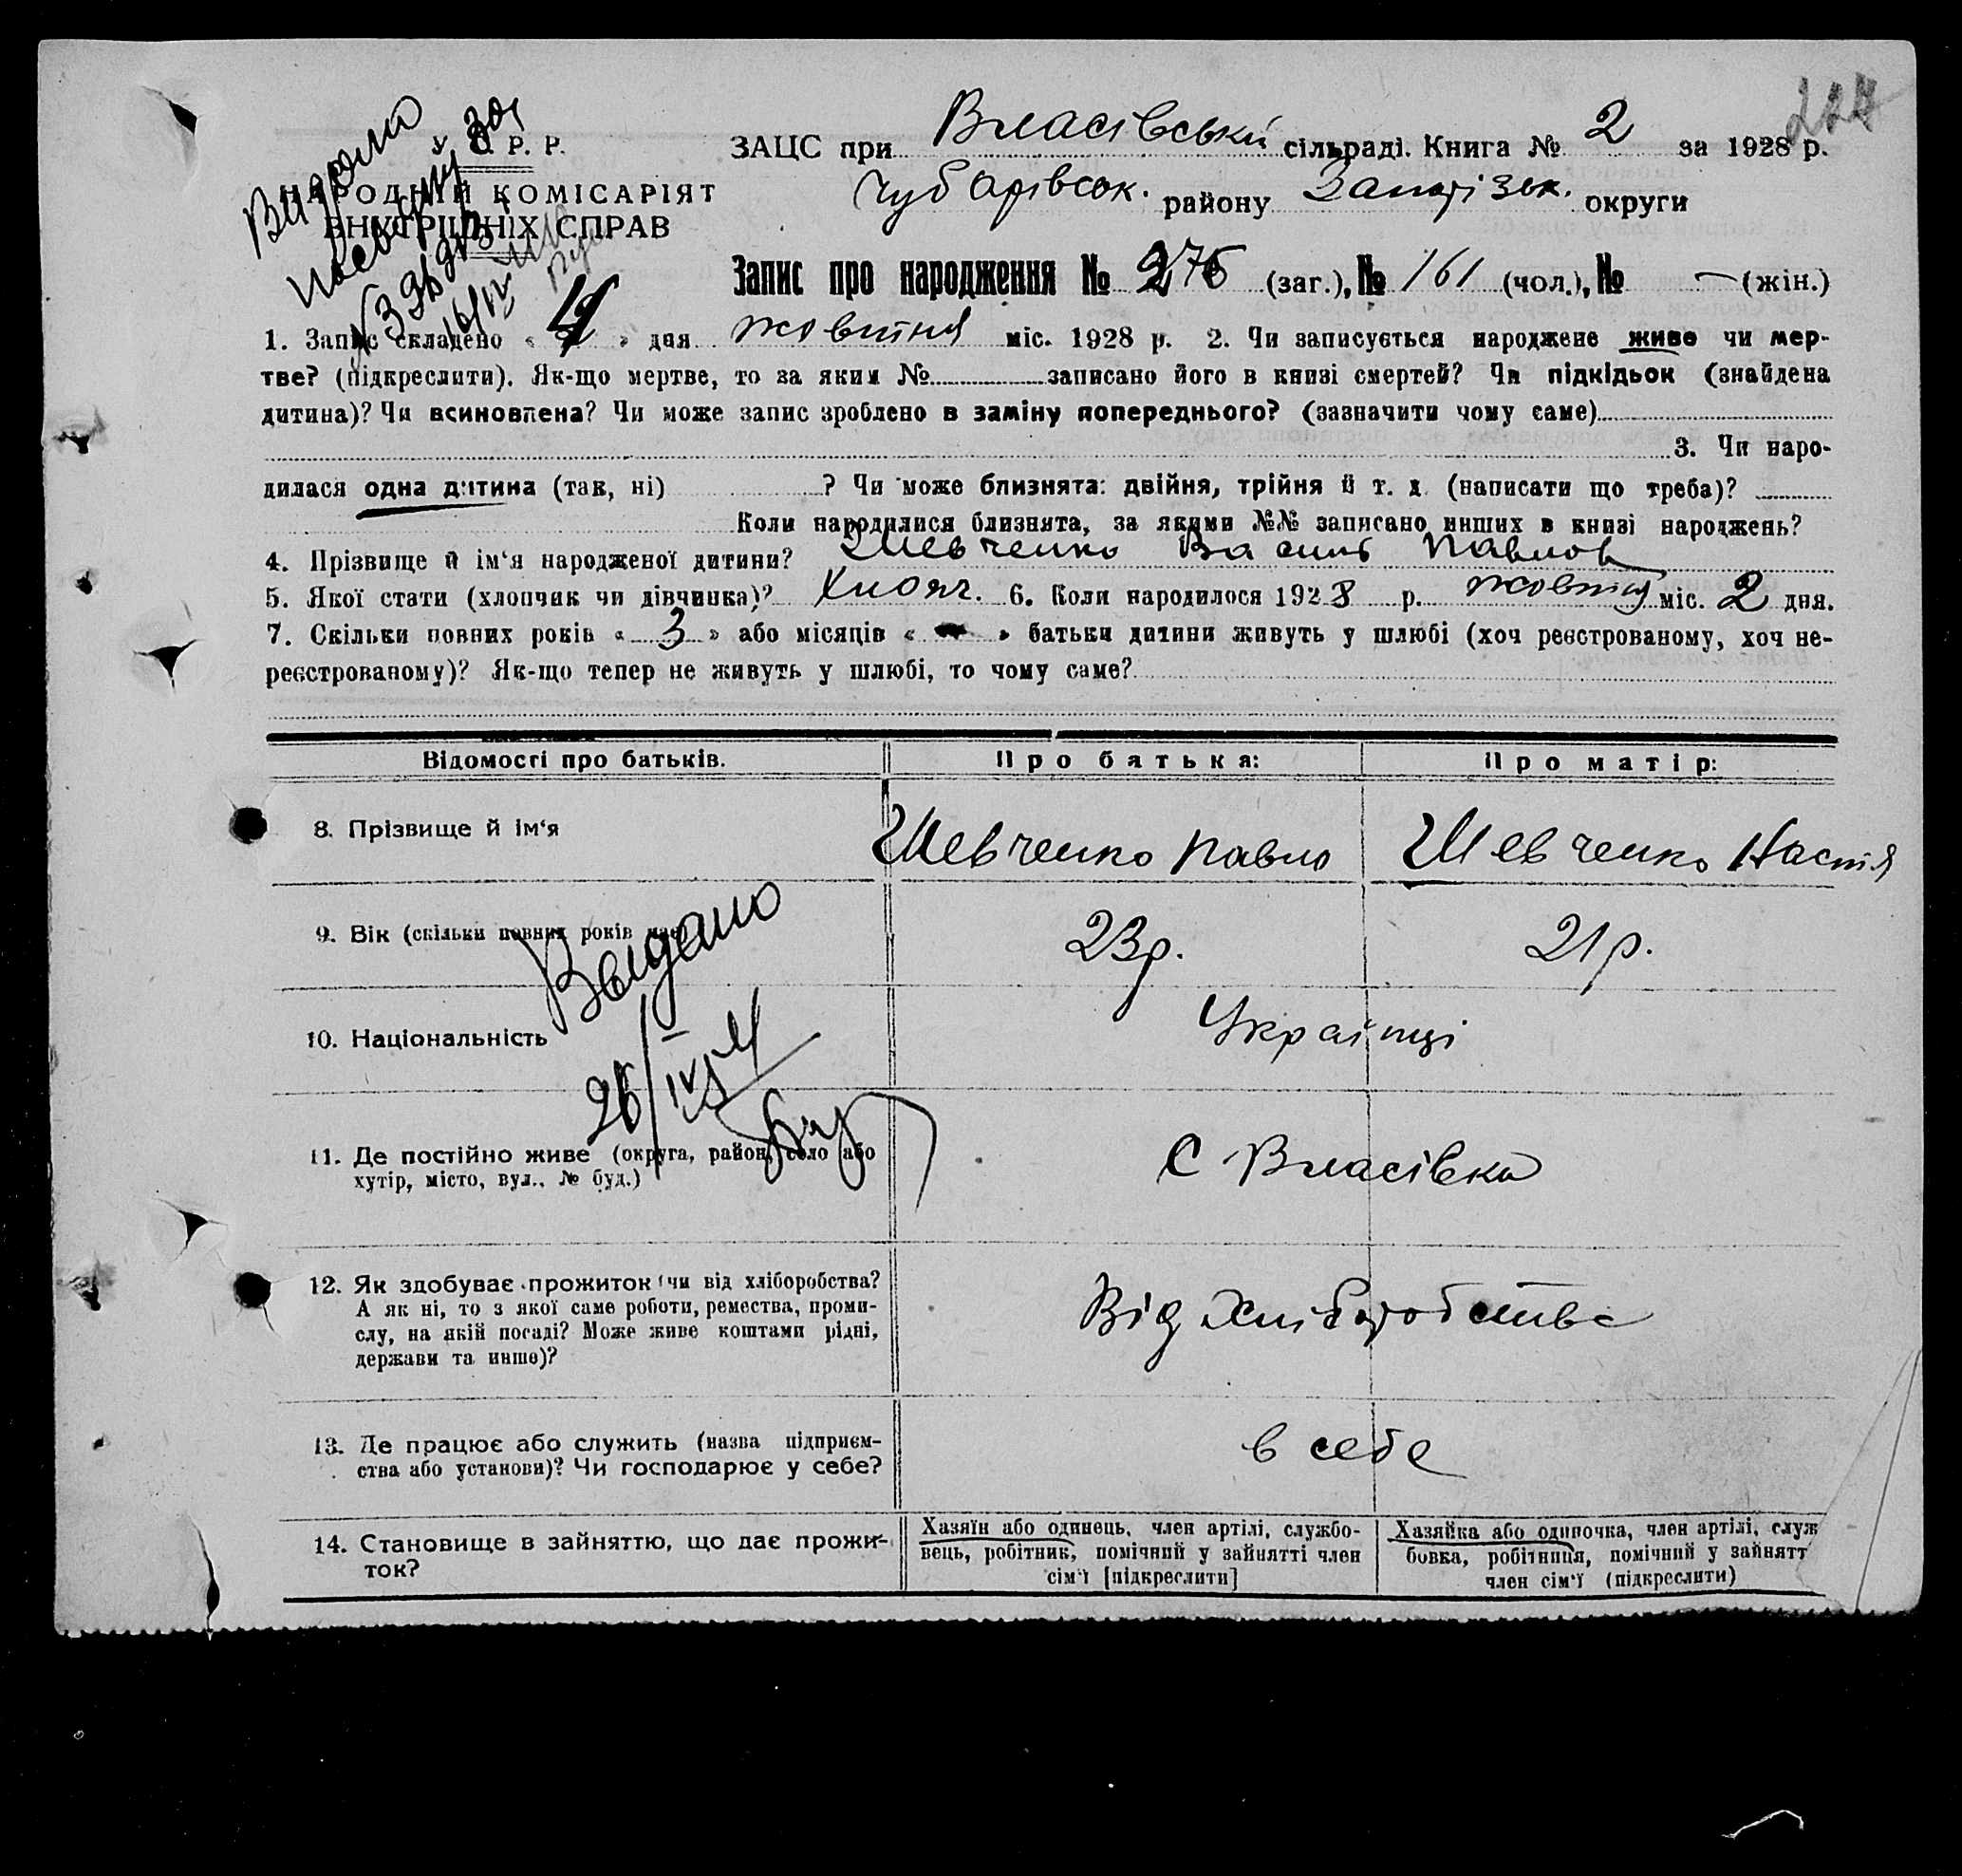 227
Видано
У. С. Р. Р.
НАРОДНІЙ КОМІСАРІЯТ
ВНУТРІШНІХ СПРАВ
ЗАЦС при Власівській сільраді. Книга № 2 за 1928 р.
Чубарівськ. району Запорізьк. округи
Запис про народження № 276 (заг.), № 161 (чол.), № — (жін.)
1. Запис складено « 4 » дня жовтня міс. 1928 р. 2. Чи записується народжене живе чи мер-
тве? (підкреслити). Як-що мертве, то за яким № записано його в книзі смертей? Чи підкідьок (знайдена
дитина)? Чи всиновлена? Чи може запис зроблено в заміну попереднього? (зазначити чому саме)
3. Чи наро-
дилася одна дитина (так, ні) ? Чи може близнята: двійня, трійня й т. д. (написати що треба)?
Коли народилися близнята, за якими №№ записано инших в книзі народжень?
4. Прізвище й ім‘я народженої дитини? Шевченко Василь Павлов
5. Якої статі (хлопчик чи дівчинка)? Хлопч. 6. Коли народилося 1928 р. жовтня міс. 2 дня.
7. Скільки повних років « 3 » або місяців « » батьки дитини живуть у шлюбі (хоч реєстрованому, хоч не-
реєстрованому)? Як-що тепер не живуть у шлюбі, то чому саме?
Відомості про батьків. Про батька: Про матір:
8. Прізвище й ім‘я Шевченко Павло Шевченко Настя
9. Вік (скільки повних років має) 23р. 21р.
Выдано
10. Національність Українці
26/IV
11. Де постійно живе (округа, район, село або
хутір, місто, вул., № буд.) С Власівка
12. Як здобуває прожиток (чи від хліборобства?
А як ні, то з якої саме роботи, ремества, проми-
слу, на якій посаді? Може живе коштами рідні,
держави та инше)? Від хліборобства
13. Де працює або служить (назва підприєм-
ства або установи)? Чи господарює у себе? в себе
14. Становище в зайняттю, що дає прожи-
ток?
Хазяїн або одинець, член артілі, службо-
вець, робітник, помічний у зайнятті член
сім‘ї [підкреслити]
Хазяйка або одиночка, член артілі, служ
бовка, робітниця, помічний у зайнятт
член сім‘ї (підкреслити)